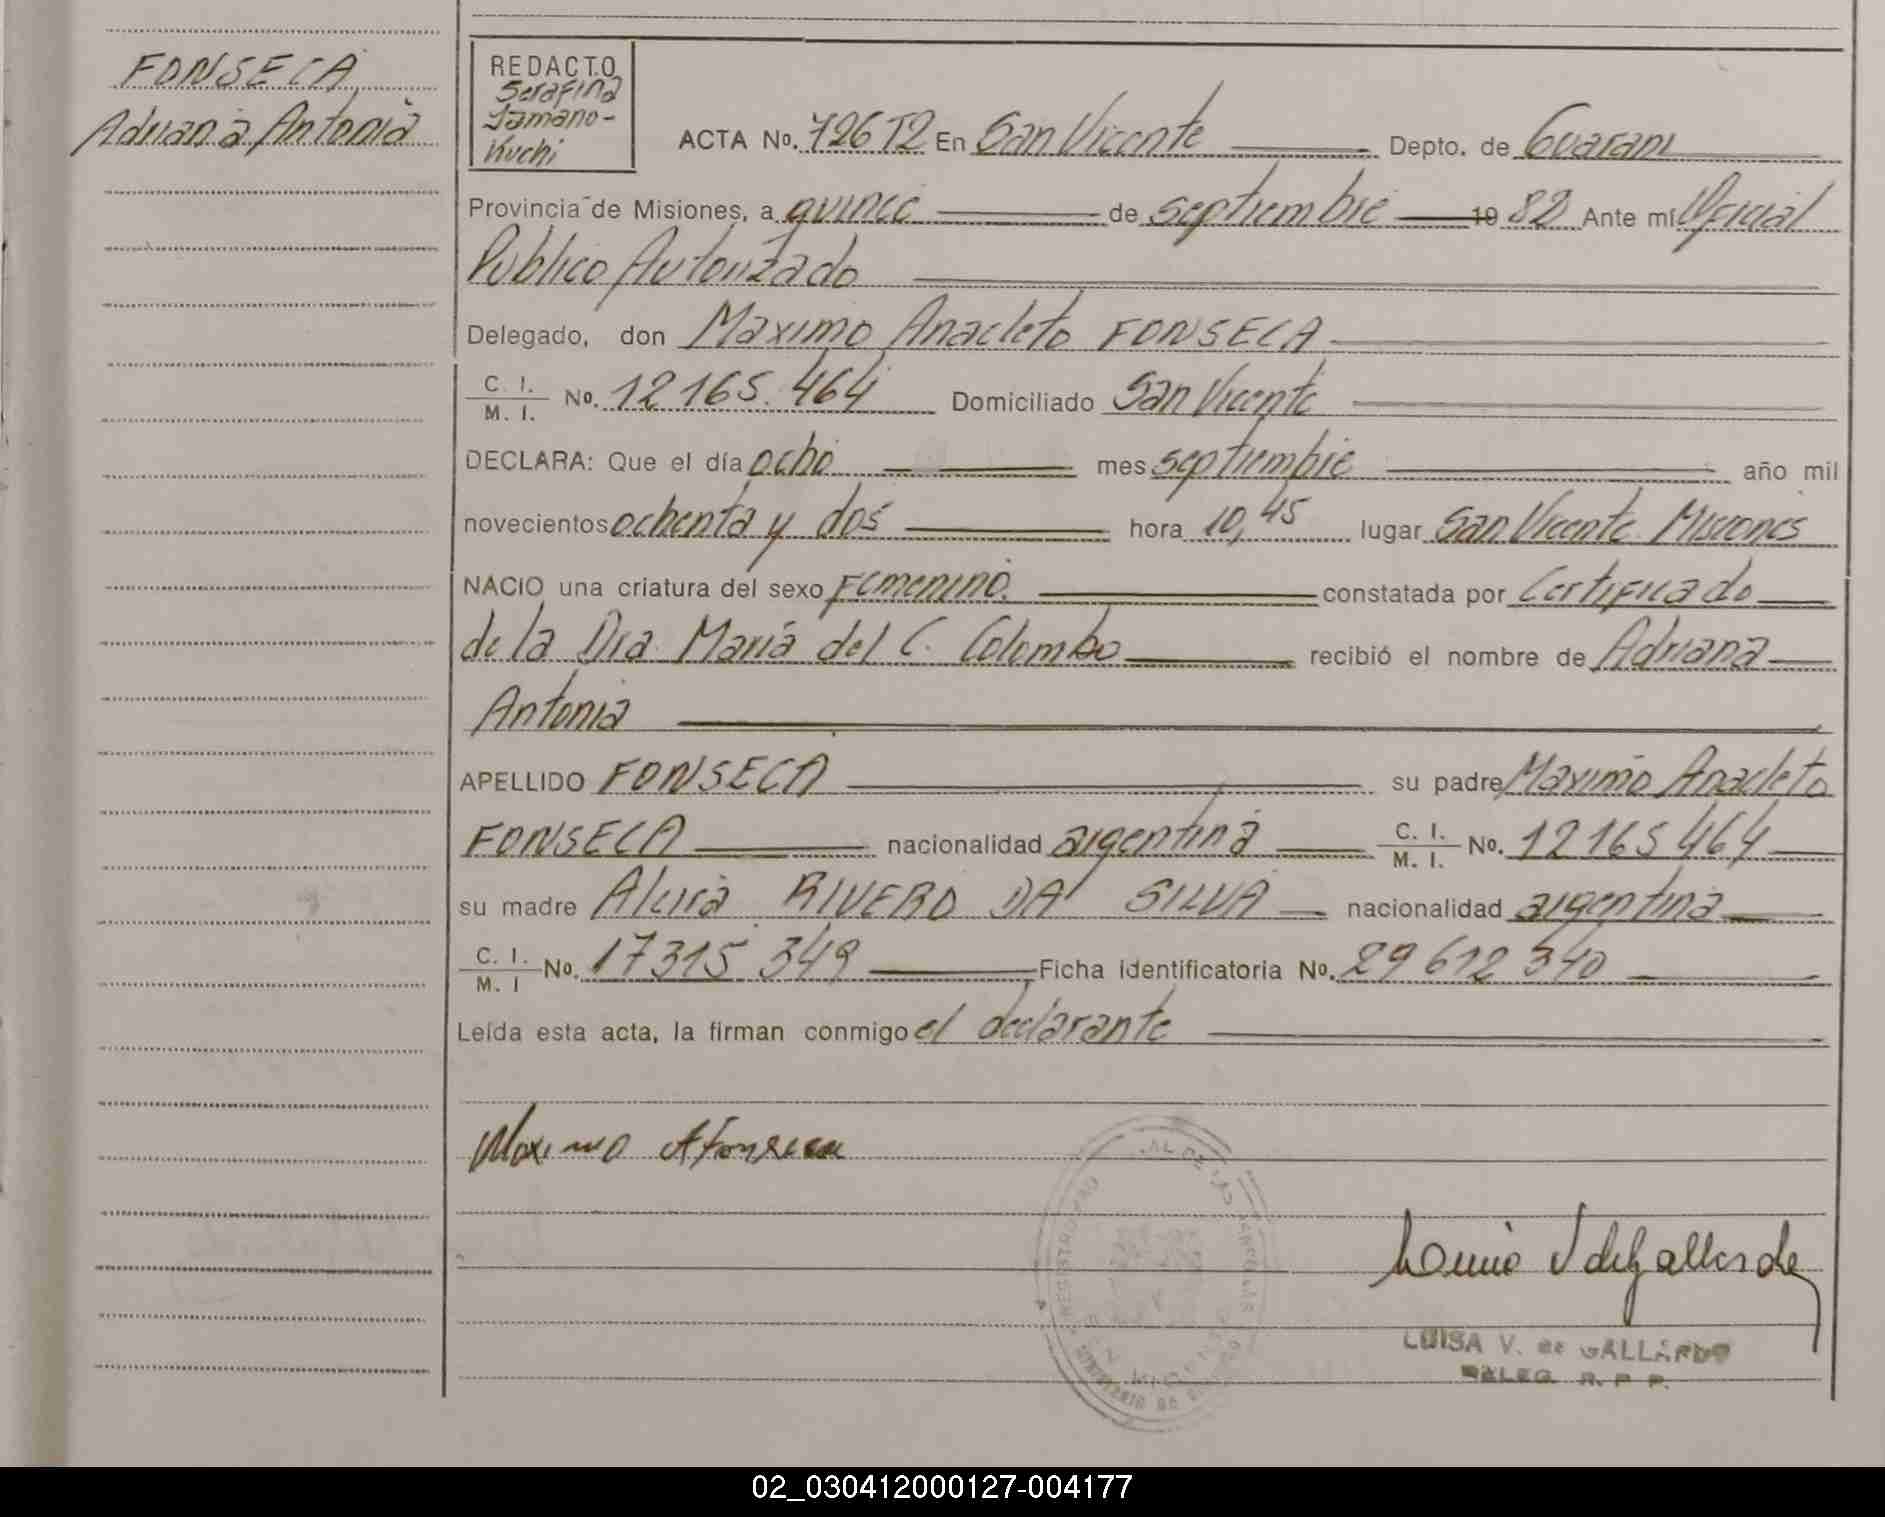 FONSECA
Adriana Antonia
REDACTO
Serafina
Jamano-
Kuchi
ACTA No. 726 T2 En San Vicente Depto. de Guarani
Provincia de Misiones, a quince de septiembre 1982 Ante mí Oficial
Público Autorizado
Delegado, don Maximo Anacleto FONSECA
C. I.
M. I. No. 12165.464 Domiciliado San Vicente
DECLARA: Que el día ocho mes septiembre año mil
novecientos ochenta y dos hora 10,45 lugar San Vicente Misiones
NACIO una criatura del sexo Femenino. constatada por Certificado
de la Dra. María del C. Colombo recibió el nombre de Adriana
Antonia
APELLIDO FONSECA su padre Maximo Anacleto
FONSECA nacionalidad argentina C. I.
M. I. No. 12165464
su madre Alcira RIVERO DA SILVA nacionalidad argentina
C. I.
M. I No. 17315 349 Ficha identificatoria No. 29 612 340
Leída esta acta, la firman conmigo el declarante
Maximo A Fonseca
LUISA V. de GALLARDO
DELEG. R. P. P.
02_030412000127-004177